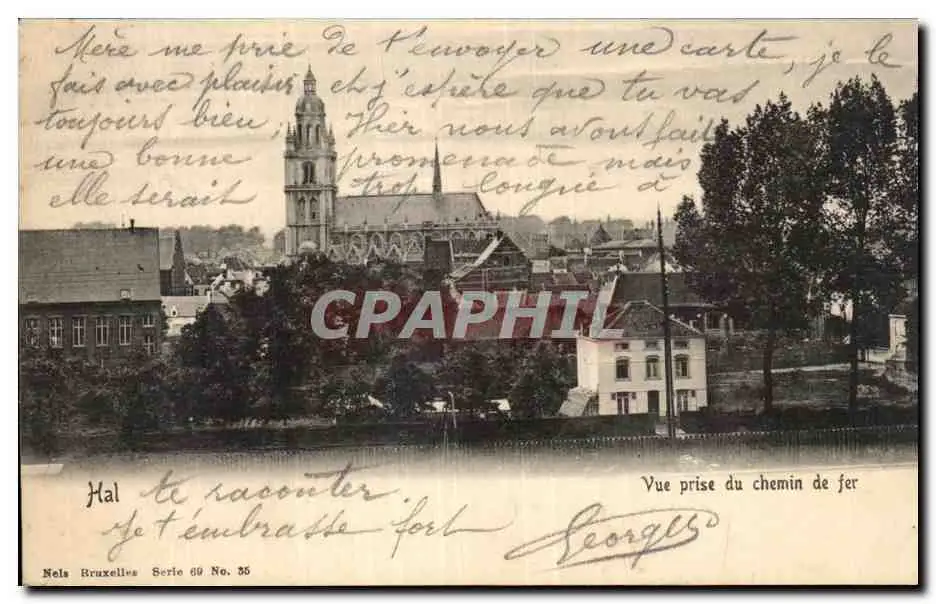 Mère me prie de t'envoyer une carte, je le
fais avec plaisir et j'espère que tu vas
toujours bien. Hier nous avons fait
une bonne promenade mais
elle serait trop longue à
CPAPHIL
Hal
te raconter
Vue prise du chemin de fer
Je t'embrasse fort
Georges
Nels Bruxelles Serie 69 No. 35